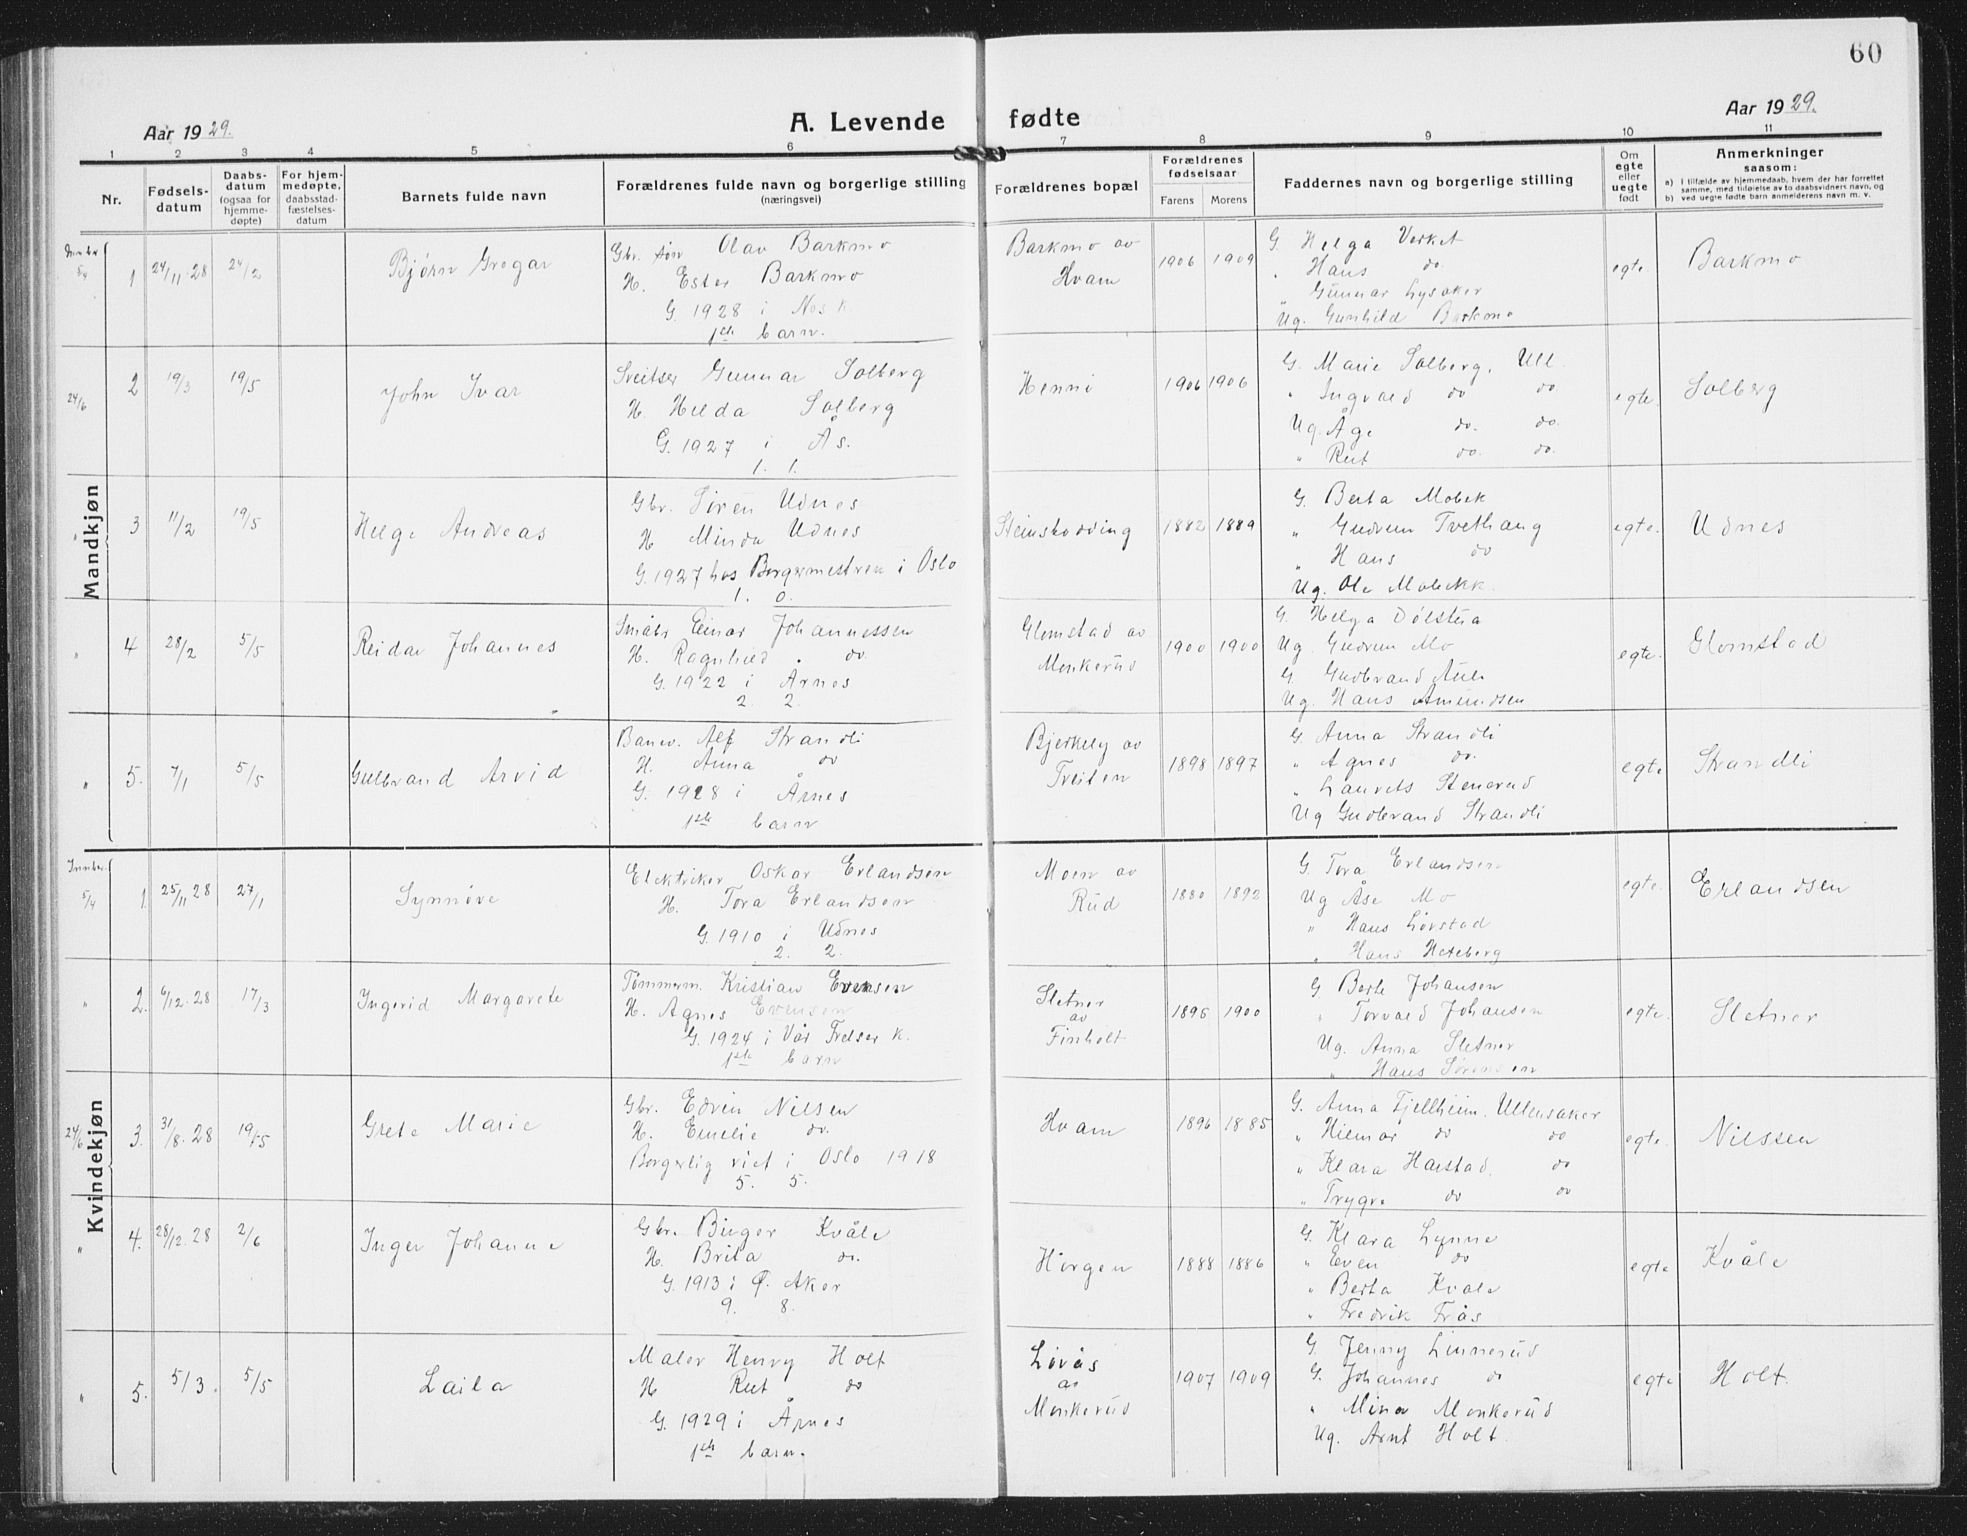 60
Aar 1929.
A. Levende fødte
Aar 1929.
1 2 3 4 5 6 7 8 9 10 11
Nr.
Fødsels-
datum
Daabs-
datum
(ogsaa for
hjemme-
døpte)
For hjem-
medøpte,
daabsstad-
fæstelses-
datum
Barnets fulde navn
Forældrenes fulde navn og borgerlige stilling
(næringsvei)
Forældrenes bopæl
Forældrenes
fødselsaar
Farens Morens
Faddernes navn og borgerlige stilling
Om
egte
eller
uegte
født
Anmerkninger
saasom:
a) i tilfælde av hjemmedaab, hvem der har forrettet
samme, med tilføielse av to daabsvidners navn, og
b) ved uegte fødte barn anmelderens navn m. v.
Mandkjøn
5/4
1 24/11-28 24/2
Bjørn Gregar
Gbr. søn Olav Barkmo
H. Ester Barkmo
G 1928 i Nes k
1ste barn.
Barkmo av
Hvam
1906 1909
G. Helga Verket
" Hans do.
" Gunnar Lysaker
Ug. Gunhild Barkmo
egte.
Barkmo
24/6
2 19/3 19/5
John Ivar
Sveitser Gunnar Solberg
H. Hilda Solberg
G. 1927 i Ås.
1. 1.
Henni
1906 1906
G. Marie Solberg, Ull.
" Ingvald do do
Ug. Åge do. do.
" Rut do. do.
egte.
Solberg
"
3 11/2 19/5
Helge Andreas
Gbr. Søren Udnes
H Minda Udnes
G. 1927 hos Borgermestren i Oslo
1. 0.
1882 1889
G. Berta Mobek
" Gudrun Tvethaug
" Hans do
Ug. Ole Mobekk.
egte.
Udnes
"
4 28/2 5/5
Reidar Johannes
Småbr Einar Johannessen
H. Ragnhild. do.
G. 1922 i Årnes
2. 2.
Glomstad av
Monkerud
1900 1900
G. Helga Dølstua
Ug. Gudrun Mo
G Gudbrand Auli
Ug. Hans Amundsen
egte.
Glomstad
"
5. 7/1 5/5
Gulbrand Arvid
Banv. Alf Strandli
H. Anna do
G. 1928 i Årnes
1ste barn
Bjerkely av
Treiten
1898 1897
G. Anna Strandli
" Agnes do.
" Laurits Stenerud
Ug Gudbrand Strandli
egte
Strandli
Kvindekjøn
5/4
1. 25/11 28 27/1
Synnøve
Elektriker Oskar Erlandsen
H. Tora Erlandsen
G. 1910 i Udnes
2. 2.
Moen av
Rud
1880 1892
G. Tora Erlandsen
Ug Åse Mo
" Hans Løvstad
" Hans Hexeberg
egte.
Erlandsen
"
2. 6/12-28 17/3
Ingerid Margarete
Tømmerm. Kristian Evensen
H. Agnes Evensen
G. 1924 i Vår Frelser k.
1ste barn
Sletner
av
Finholt
1895 1900
G Berte Johansen
" Torvald Johansen
Ug. Anna Sletner
" Hans Sørensen
egte.
Sletner
24/6
3. 31/8-28 19/5
Grete Marie
Gbr. Edvin Nilsen
H. Emelie do.
Borgerlig viet i Oslo 1918
5. 5.
Hvam
1896 1885
G. Anna Fjellheim. Ullensaker
" Hilmar do do
" Klara Harstad, do
" Trygve do do
egte.
Nilssen
"
4. 28/12-28 2/6
Inger Johanne
Gbr. Birger Kvåle
H. Brita do.
G. 1913 i Ø. Aker
9. 8.
Horgen
1888 1886
G. Klara Lynne
" Even do
" Berta Kvale
" Fredrik Frås
egte
Kvåle
"
5. 5/3. 5/5
Laila
Maler Henry Holt
H Rut do
G. 1929 i Årnes
1ste barn.
Løvås
av
Monkerud
1907 1909
G. Jenny Linnerud
G. Johannes do
" Mina Monkerud
Ug. Arnt Holt.
egte
Holt.